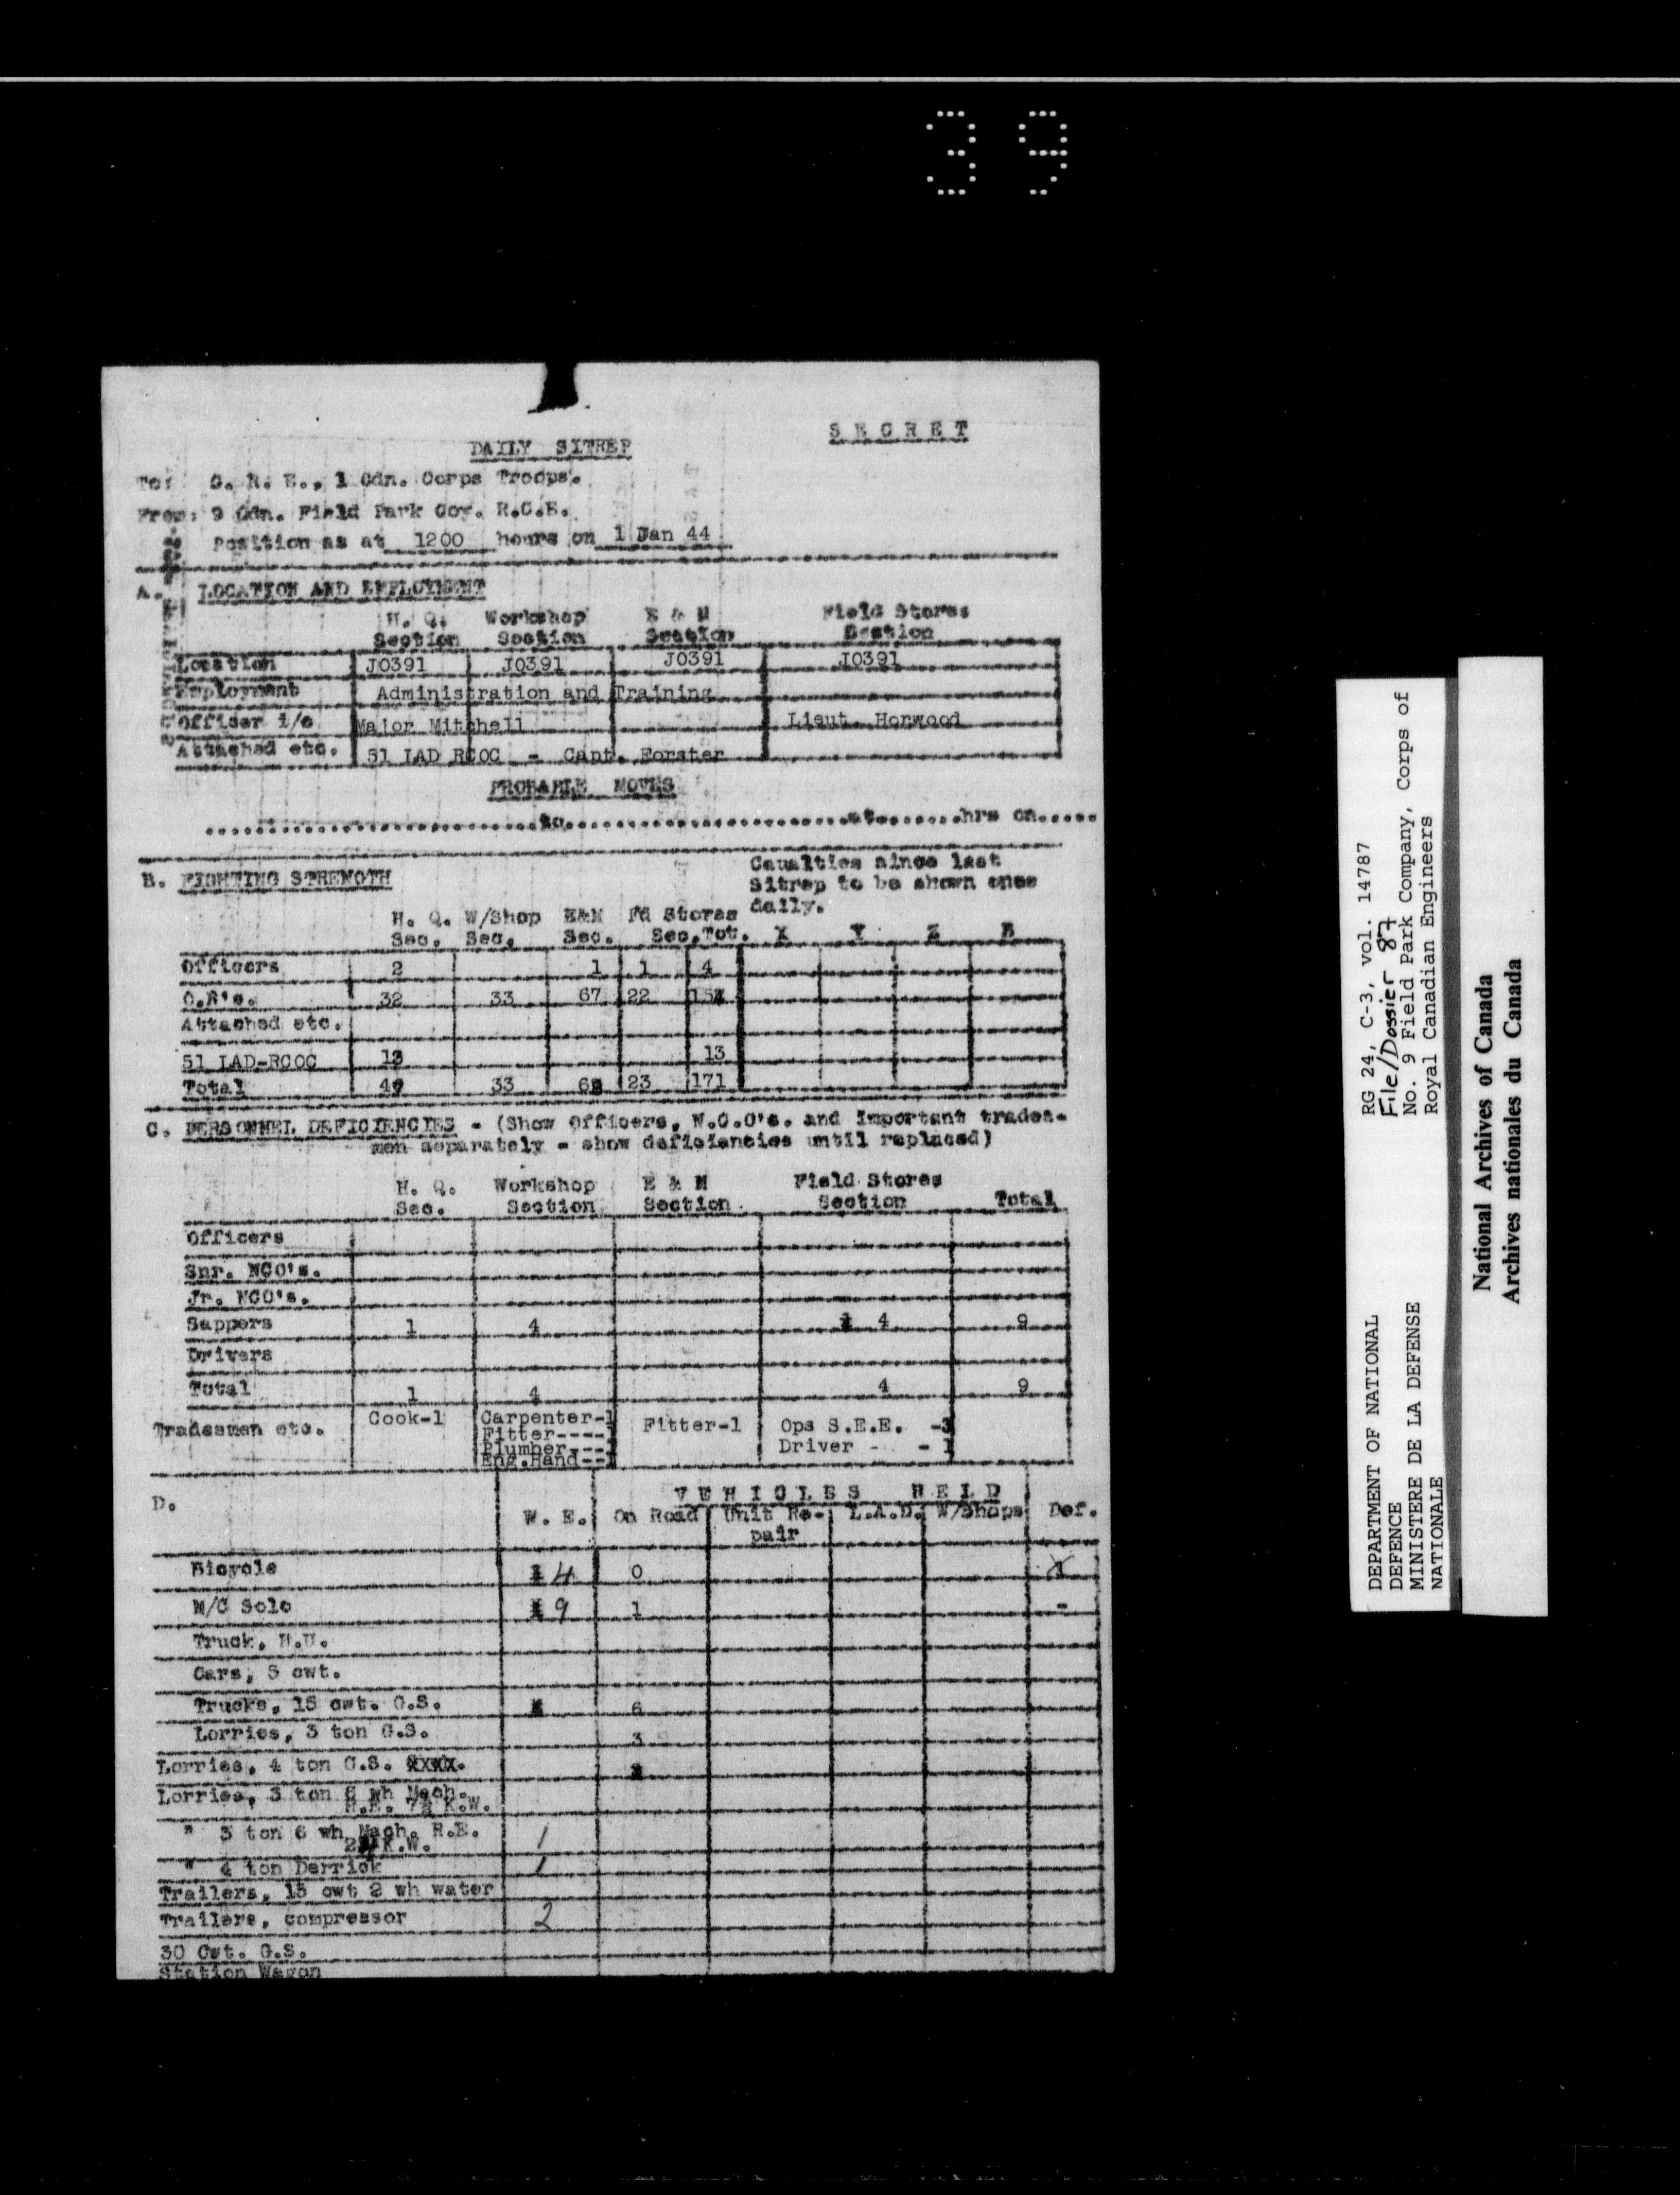 39
SECRET
DAILY SITREP
To: C. R. E., 1 Cdn. Corps Troops.
From: 9 Cdn. Field Park Coy. R.C.E.
Position as at 1200 hours on 1 Jan 44
A. LOCATION AND EMPLOYMENT
H. Q. Workshop E & M Field Stores
Section Section Section Section
Location J0391 J0391 J0391 J0391
Employment Administration and Training
Officer i/c Major Mitchell Lieut. Horwood
Attached etc. 51 LAD RCOC - Capt. Forster
PROBABLE MOVES
..............................to..........................at........hrs on.....
B. FIGHTING STRENGTH
Caualties since last
Sitrep to be shown once
daily.
H. Q. W/Shop E&M Fd Stores
Sec. Sec. Sec. Sec. Tot. X Y Z B
Officers 2 1 1 4
O.R's. 32 33 67 22 154
Attached etc.
51 LAD-RCOC 13 13
Total 47 33 68 23 171
C. PERSONNEL DEFICIENCIES - (Show Officers, N.C.O's. and Important trades-
men separately - show deficiencies until replaced)
H. Q. Workshop E & M Field Stores
Sec. Section Section Section Total
Officers
Snr. NCO's.
Jr. NCO's.
Sappers 1 4 4 9
Drivers
Total 1 4 4 9
Tradesmen etc. Cook-1 Carpenter-1 Fitter-1 Ops S.E.E. -3
Fitter---- Driver - - 1
Plumber---1
Eng.Hand--1
D. VEHICLES HELD
W. E. On Road Unit Re- L.A.D. W/Shops Def.
pair
Bicycle 4 0
M/C Solo 9 1 -
Truck, H.U.
Cars, 5 cwt.
Trucks, 15 cwt. G.S. 6
Lorries, 3 ton G.S. 3
Lorries, 4 ton G.S. XXXX.
Lorries, 3 ton 6 wh Mach.
R.E. 7½ K.W.
" 3 ton 6 wh Mach. R.E. 1
K.W.
" 4 ton Derrick 1
Trailers, 15 cwt 2 wh water
Trailers, compressor 2
30 Cwt. G.S.
Station Wagon
RG 24, C-3, vol. 14787
File/Dossier 87
No. 9 Field Park Company, Corps of
Royal Canadian Engineers
DEPARTMENT OF NATIONAL
DEFENCE
MINISTERE DE LA DEFENSE
NATIONALE
National Archives of Canada
Archives nationales du Canada